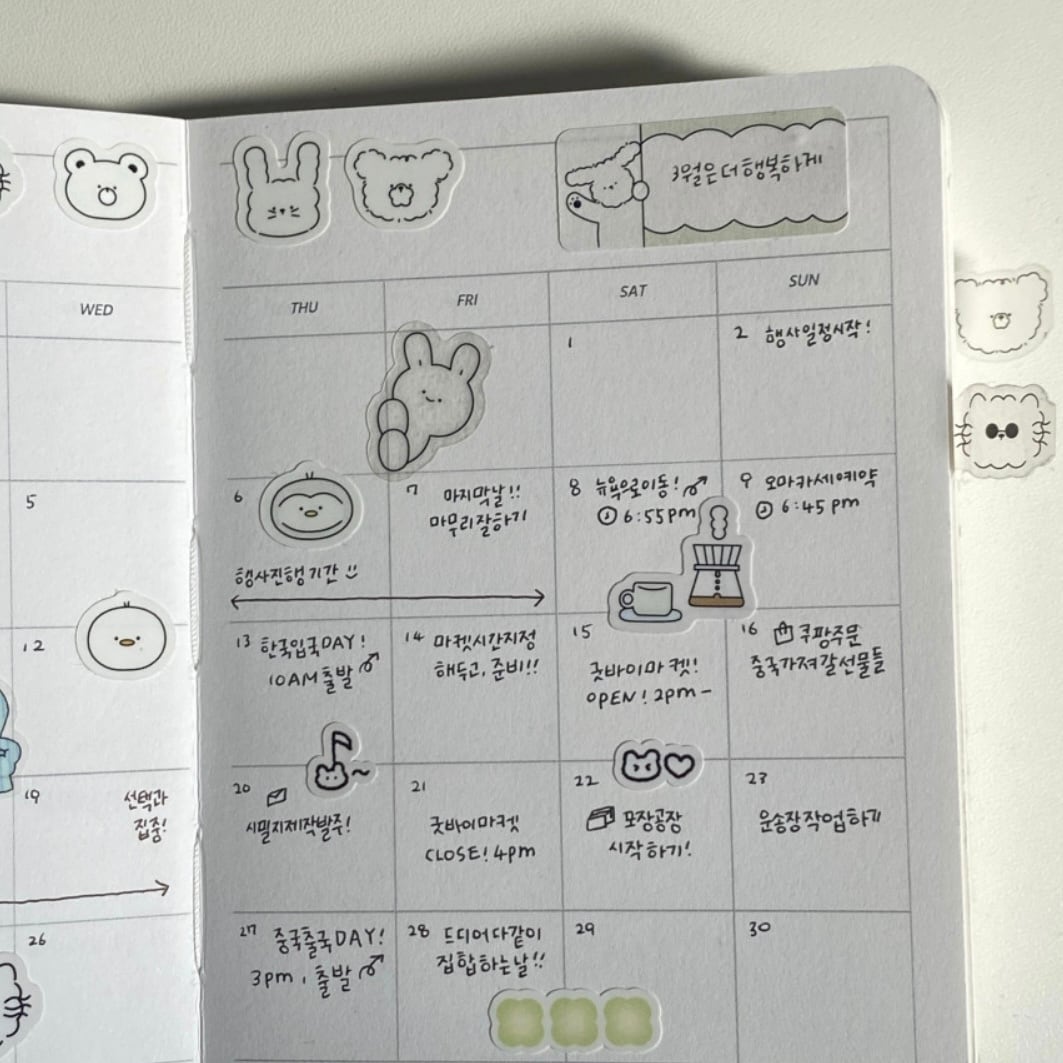 3월은 더 행복하게
WED
THU
FRI
SAT
SUN
1
2 행사일정시작!
5
6
행사진행기간
7 마지막날!!
마무리잘하기
8 뉴욕으로이동!
6:55pm
9 오마카세예약
6:45 pm
12
13 한국입국DAY!
10AM 출발
14 마켓시간지정
해두고, 준비!!
15
굿바이마켓!
OPEN! 2pm-
16 쿠팡주문
중국가져갈선물들
19 선택과
집중!
20
시밀지제작발주!
21
굿바이마켓
CLOSE! 4pm
22
포장공장
시작하기!
23
운송장작업하기
26
27 중국출국DAY!
3pm, 출발
28 드디어다같이
집합하는날!!
29
30